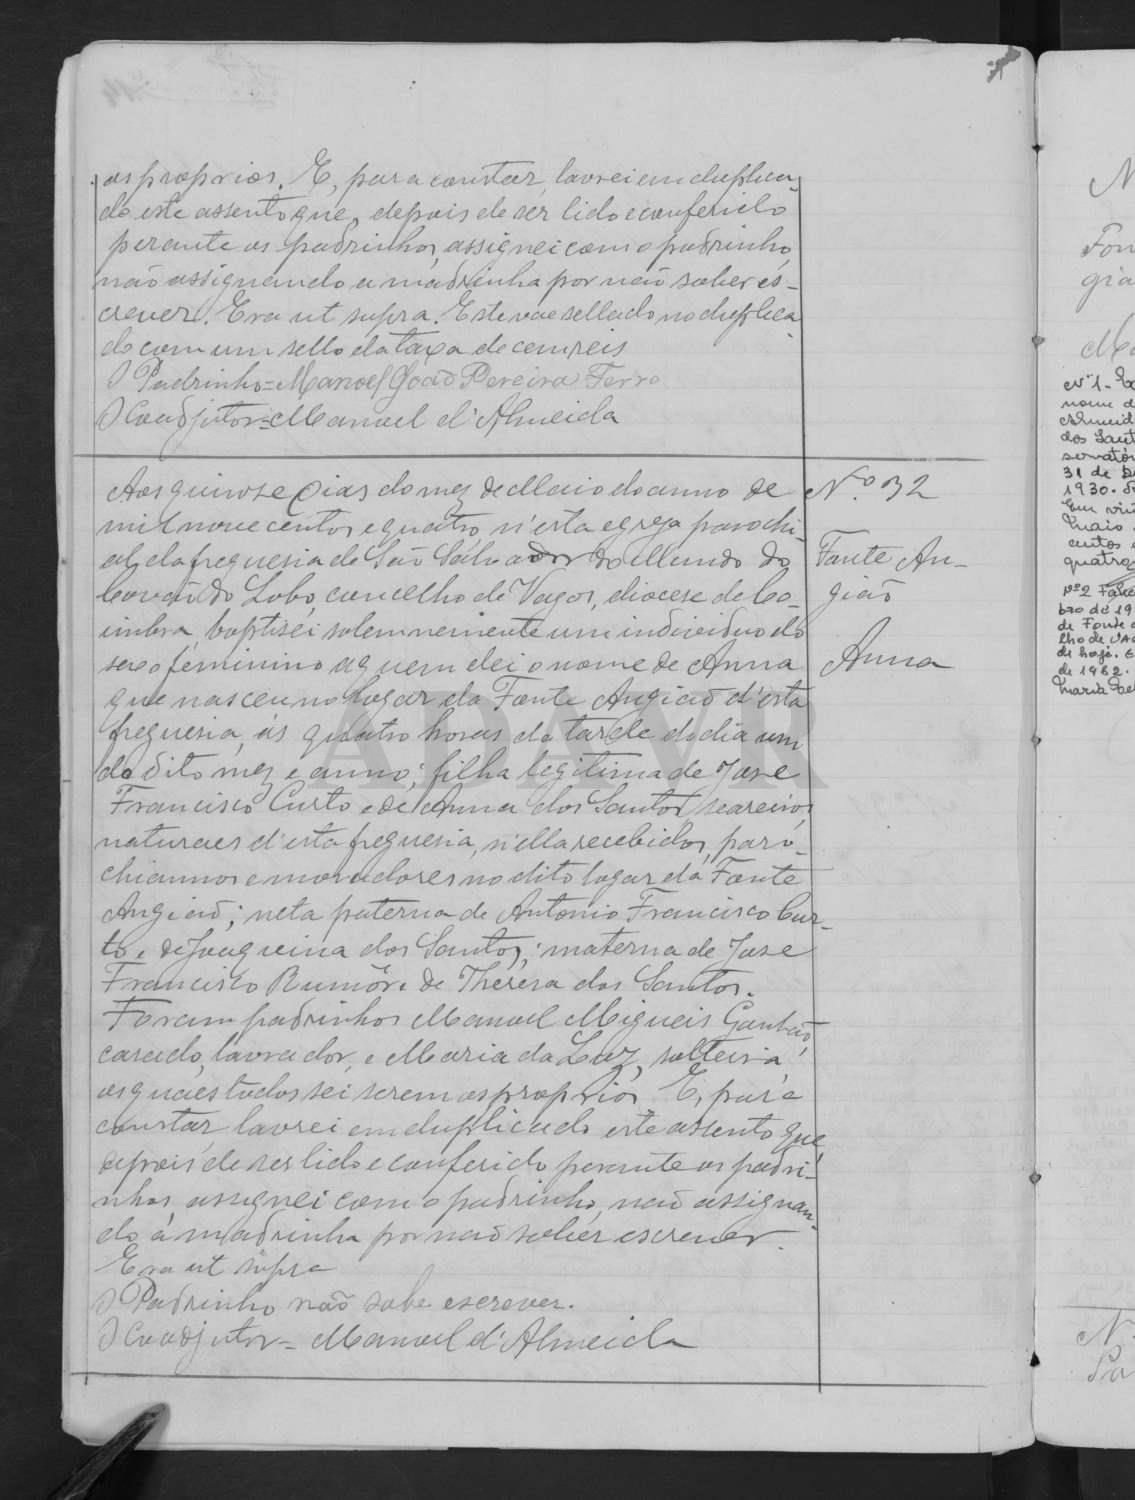 os proprios. E, para constar, lavrei em duplica-
do este assento que, depois de ser lido e conferido
perante os padrinhos, assignei com o padrinho,
não assignando a madrinha por não saber es-
crever. Era ut supra. Este vae sellado no duplica
do com um sello da taxa de cem reis
O Padrinho = Manoel João Pereira Ferro
O Coadjutor = Manuel d'Almeida
Aos quinse dias do mez de Maio do anno de
mil nove centos e quatro, n'esta egreja parochi-
al da freguesia de São Salvador do Mundo do
Covão do Lobo, concelho de Vagos, diocese de Co-
imbra, baptisei solemnemente um individuo do
sexo feminino a quem dei o nome de Anna
que nasceu no logar da Fonte Angião d'esta
freguesia, ás quatro horas da tarde do dia um
do dito mez e anno; filha legitima de Jose
Francisco Curto e de Anna dos Santos, seareiros,
naturaes d'esta freguesia, n'ella recebidos, paro-
chiannos e moradores no dito logar da Fonte
Angião; neta paterna de Antonio Francisco Cur-
to e de Joaquina dos Santos; materna de Jose
Francisco Rumôr e de Theresa dos Santos.
Foram padrinhos Manuel Migueis
casado, lavrador, e Maria da Luz, solteira,
os quaes todos sei serem os proprios. E, para
constar, lavrei em duplicado este assento que,
depois de ser lido e conferido perante os padri-
nhos, assignei com o padrinho, não assignan-
do a madrinha por não saber escrever.
Era ut supra
O Padrinho não sabe escrever.
O Coadjutor = Manuel d'Almeida
Nº 32
Fonte An-
gião
Anna
ADAVR
N
Fon
gia
Nº 1 -
nome d
Almeid
dos Sant
servató
31 de
1930.
Em vir
Maio
centos e
quatro
Nº 2
bro de 19
de Fonte
lho de VA
de hoje.
de 1962.
Maria
N